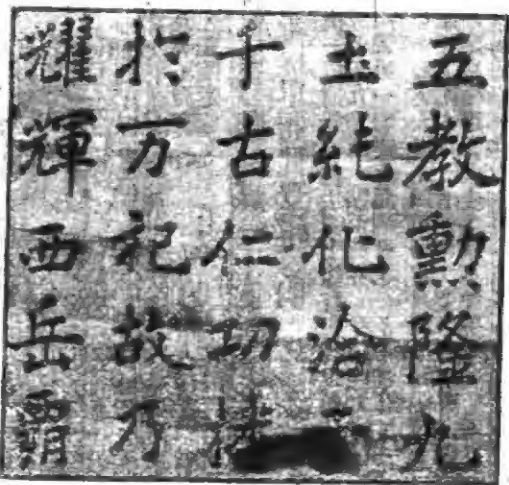 五教勳隆九
土純化洽
千古仁功
扵万祀故乃
耀輝西岳霸